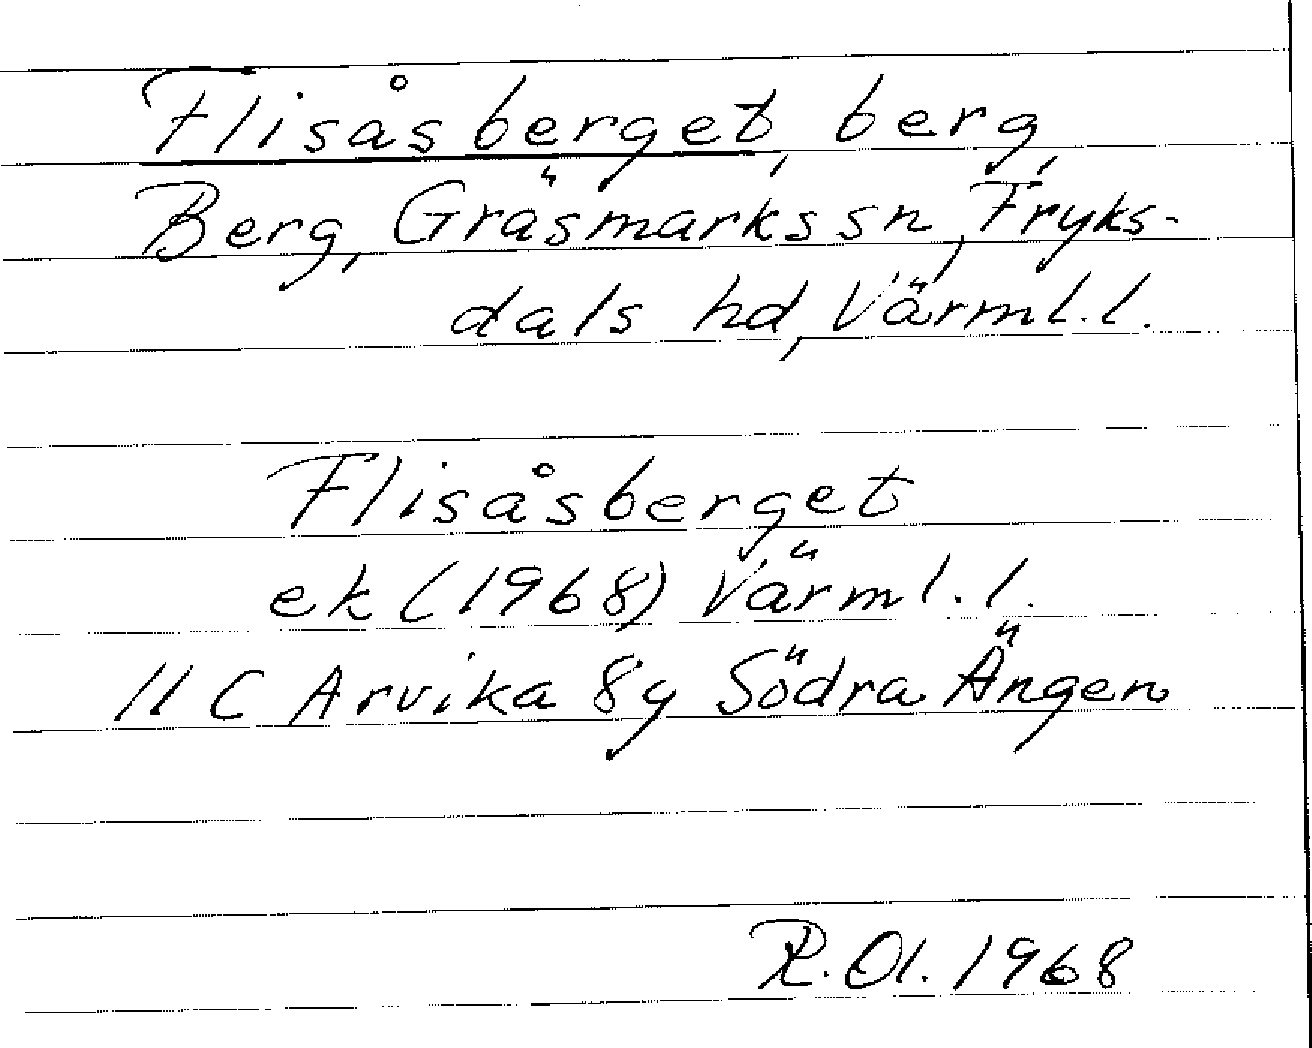 Flisåsberget, berg,
Berg, Gräsmarks sn, Fryks-
dals hd, Värml. l.
Flisåsberget
ek (1968) Värml. l.
11 C Arvika 8 g Södra Ängen
R. Ol. 1968